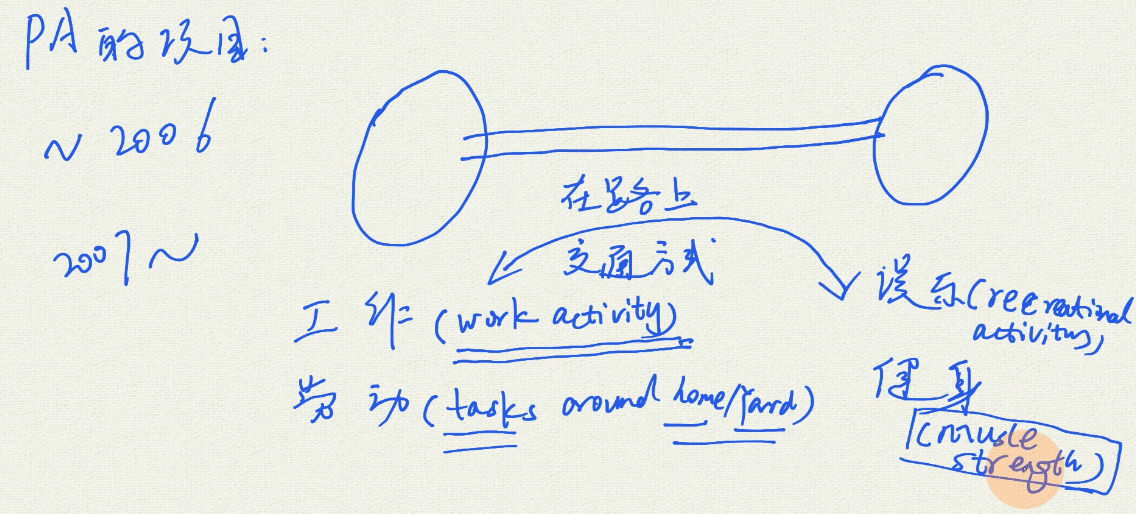 PA的项目:
~2006
2007~
在路上
交通方式
工作(work activity)
劳动(tasks around home/yard)
娱乐(recreational
activitity)
健身
(muscle
strength)